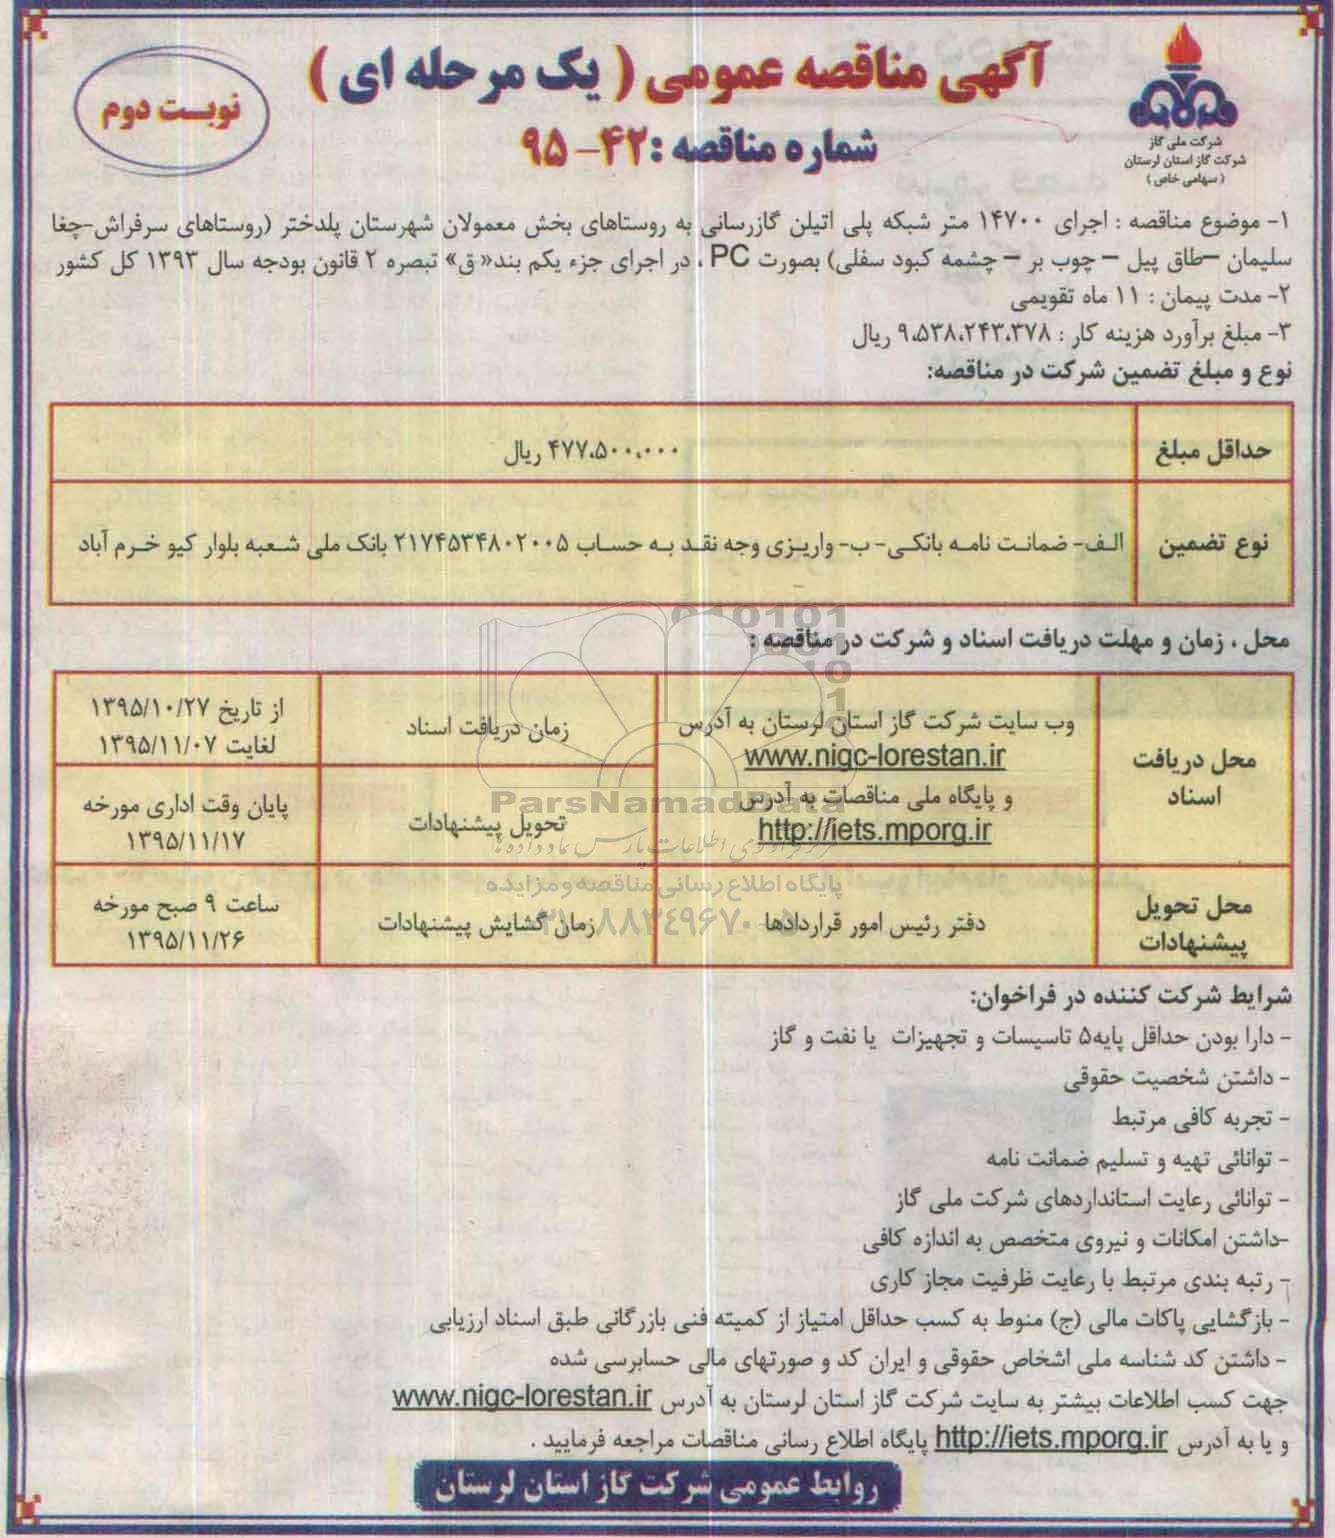 آگهی مناقصه عمومی ( یک مرحله ای )
شماره مناقصه :۴۲- ۹۵
نوبت دوم
شرکت ملی گاز
شرکت گاز استان لرستان
( سهامی خاص )
۱- موضوع مناقصه : اجرای ۱۴۷۰۰ متر شبکه پلی اتیلن گازرسانی به روستاهای بخش معمولان شهرستان پلدختر (روستاهای سرفراش-چغا
سلیمان –طاق پیل – چوب بر – چشمه کبود سفلی) بصورت PC ، در اجرای جزء یکم بند« ق» تبصره ۲ قانون بودجه سال ۱۳۹۳ کل کشور
۲- مدت پیمان : ۱۱ ماه تقویمی
۳- مبلغ برآورد هزینه کار : ۹،۵۳۸،۲۴۳،۳۷۸ ریال
نوع و مبلغ تضمین شرکت در مناقصه:
حداقل مبلغ
۴۷۷،۵۰۰،۰۰۰ ریال
نوع تضمین
الف- ضمانت نامه بانکی- ب- واریزی وجه نقد به حساب ۲۱۷۴۵۳۴۸۰۲۰۰۵ بانک ملی شعبه بلوار کیو خرم آباد
محل ، زمان و مهلت دریافت اسناد و شرکت در مناقصه :
محل دریافت
اسناد
وب سایت شرکت گاز استان لرستان به آدرس
www.nigc-lorestan.ir
و پایگاه ملی مناقصات به آدرس
http://iets.mporg.ir
زمان دریافت اسناد
از تاریخ ۱۳۹۵/۱۰/۲۷
لغایت ۱۳۹۵/۱۱/۰۷
تحویل پیشنهادات
پایان وقت اداری مورخه
۱۳۹۵/۱۱/۱۷
محل تحویل
پیشنهادات
دفتر رئیس امور قراردادها
زمان گشایش پیشنهادات
ساعت ۹ صبح مورخه
۱۳۹۵/۱۱/۲۶
ParsNamadData
پایگاه اطلاع رسانی مناقصه و مزایده
شرایط شرکت کننده در فراخوان:
- دارا بودن حداقل پایه۵ تاسیسات و تجهیزات یا نفت و گاز
- داشتن شخصیت حقوقی
- تجربه کافی مرتبط
- توانائی تهیه و تسلیم ضمانت نامه
- توانائی رعایت استانداردهای شرکت ملی گاز
-داشتن امکانات و نیروی متخصص به اندازه کافی
- رتبه بندی مرتبط با رعایت ظرفیت مجاز کاری
- بازگشایی پاکات مالی (ج) منوط به کسب حداقل امتیاز از کمیته فنی بازرگانی طبق اسناد ارزیابی
- داشتن کد شناسه ملی اشخاص حقوقی و ایران کد و صورتهای مالی حسابرسی شده
جهت کسب اطلاعات بیشتر به سایت شرکت گاز استان لرستان به آدرس www.nigc-lorestan.ir
و یا به آدرس http://iets.mporg.ir پایگاه اطلاع رسانی مناقصات مراجعه فرمایید .
روابط عمومی شرکت گاز استان لرستان